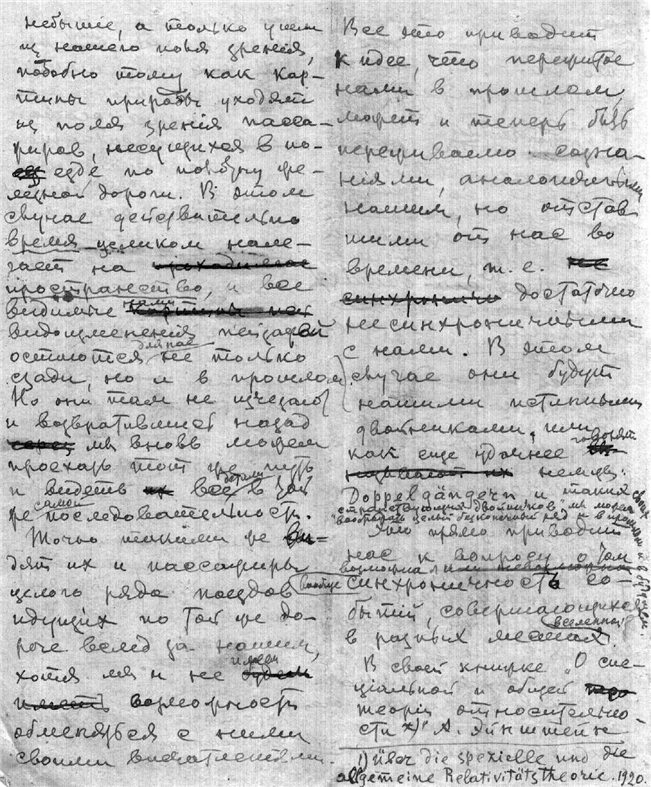 небытие, а только ушли
из нашего поля зрения,
подобно тому как кар-
тины природы уходят
из поля зрения пасса-
жиров, несущихся в по-
езде по полотну же-
лезной дороги. В этом
случае действительно
время целиком нале-
гает на
пространство, и все
видимые нами
видоизменения пейзажей
остаются для нас не только
сзади, но и в прошлом.
Но они там не исчезают
и возвратившись назад
мы вновь можем
проехать тот же путь
и видеть все детали в той
же самой последовательности.
Точно такими же ви-
дят их и пассажиры
целого ряда поездов
идущих по той же до-
роге вслед за нашим,
хотя мы и не имеем
возможность
обменяться с ними
своими впечатлениями.
Все это приводит
к идее, что пережитое
нами в прошлом,
может и теперь быть
переживаемо созна-
ниями, аналогичными
нашим, но отстав
шими от нас во
времени, т. е.
достаточно
несинхроничными
с нами. В этом
случае они будут
нашими истинными
двойниками, или
как еще удачнее говорят
немцы:
Doppelgänger'ами и таких
странствующих двойников мы можем
вообразить целый бесконечный ряд и в прошлом и в будущем.
Это прямо приводит
нас к вопросу о том
возможна ли
вообще синхроничность со-
бытий, совершающихся
в разных местах вселенной.
В своей книжке „О спе-
циальной и общей
теории относительно-
сти x)" А. Эйнштейн
1) über die spezielle und die
allgemeine Relativitätstheorie. 1920.